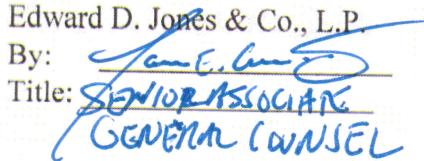 Edward D. Jones & Co., L.P.
By:
Title: SENIOR ASSOCIATE
GENERAL COUNSEL